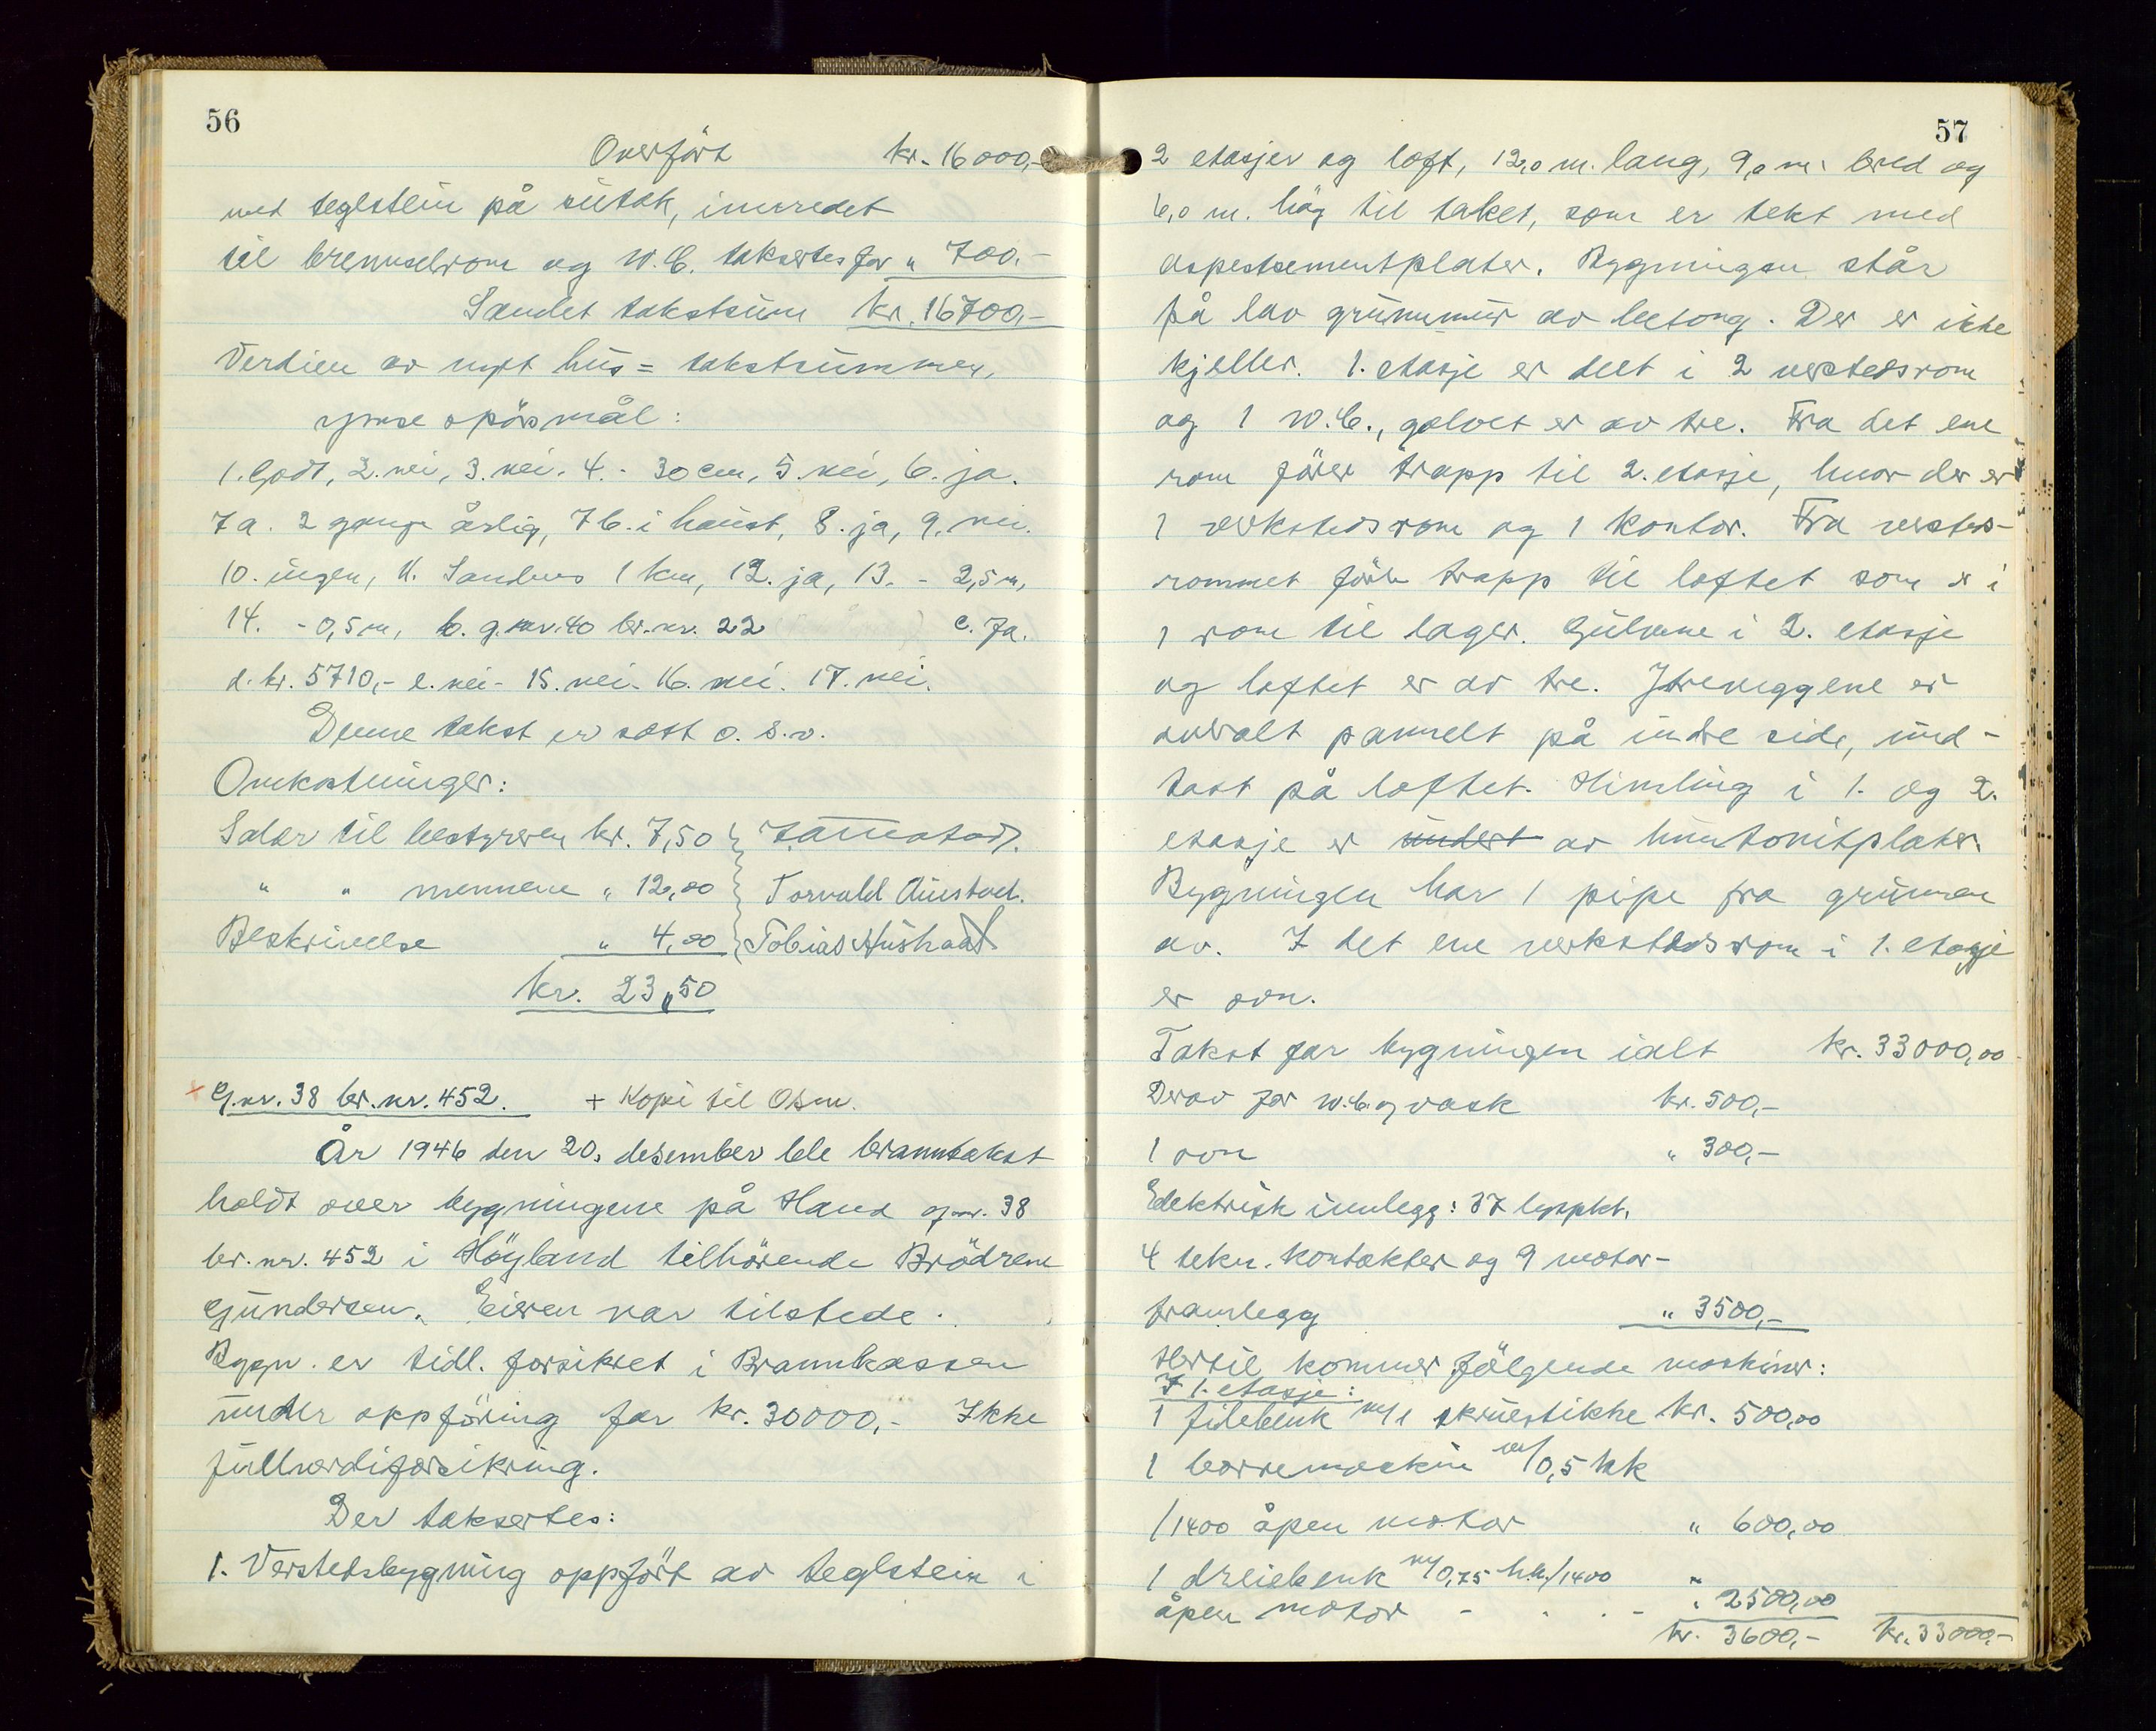 56
Overført kr. 16000,-
med teglstein på sutak, innredet
til brenselrom og W.C. taksertes for " 700.-
Samlet takstsum kr. 16700,-
Verdien av nytt hus = takstsummen.
Ymse spörsmål:
1. Godt, 2. nei, 3. nei. 4. - 30 cm, 5. nei, 6. ja.
7 a. 2 gange årlig, 7 b. i haust, 8. ja, 9. nei.
10. ingen, 11. Sandnes 1 km, 12. ja, 13. - 2,5 m,
14. - 0,5 m, b. g.nr. 40 br.nr. 22 c. Ja.
d. kr. 5710,- e. nei - 15. nei. 16. nei. 17. nei.
Denne takst er satt o. s. v.
Omkostninger:
Salær til bestyreren kr. 7,50
" " mennene " 12,00 Torvald Austvoll.
Beskrivelse " 4,00 Tobias Aushaat
kr. 23,50
G.nr. 38 br.nr. 452. + Kopi til Osm.
År 1946 den 20. desember ble branntakst
holdt over bygningene på Hana g.nr. 38
br.nr. 452 i Höyland tilhörende Brödrene
Gundersen. Eieren var tilstede.
Bygn. er tidl. forsikret i Brannkassen
under oppföring for kr. 30000,- Ikke
fullverdiforsikring.
Der taksertes:
1. Verstedsbygning oppfört av teglstein i
57
2 etasjer og loft, 12,0 m. lang, 9,0 m. bred og
6,0 m. hög til taket, som er tekt med
aspestsementplater. Bygningen står
på lav grunnmur av betong. Der er ikke
kjeller. 1. etasje er delt i 2 verstedsrom
og 1 W.C., golvet er av tre. Fra det ene
rom förer trapp til 2. etasje, hvor der er
1 verkstedsrom og 1 kontor. Fra versteds-
rommet förer trapp til loftet som er i
1 rom til lager. Gulvene i 2. etasje
og loftet er av tre. Ytreveggene er
overalt pannelt på indre side, und-
tatt på loftet. Himling i 1. og 2.
etasje er undert av huntonitplater.
Bygningen har 1 pipe fra grunnen
av. I det ene verkstedsrom i 1. etasje
er ovn.
Takst for bygningen ialt kr. 33000,00
Derav for W.C. og vask kr. 500,-
1 ovn " 300,-
Edektrisk innlegg: 37 lyspkt.
4 tekn. kontakter og 9 motor-
framlegg " 3500,-
Hertil kommer fölgende maskiner:
I 1. etasje:
1 filebenk m/1 skruestikke kr. 500,00
1 borremaskin m/0,5 hk
/1400 åpen motor " 600,00
1 dreiebenk m/0,75 h.k./1400 "
åpen motor - . . - " 2500,00
kr. 3600,- kr. 33000,-